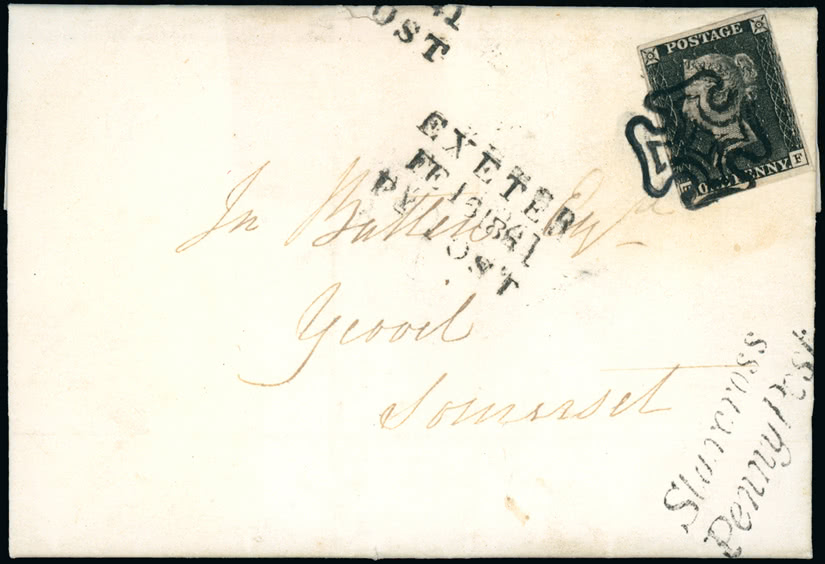 41
OST
POSTAGE
ONE PENNY
F
EXETER
FE 19 1841
PY POST
Jn Batten Esqr
Yeovil
Somerset
Starcross
Penny Post